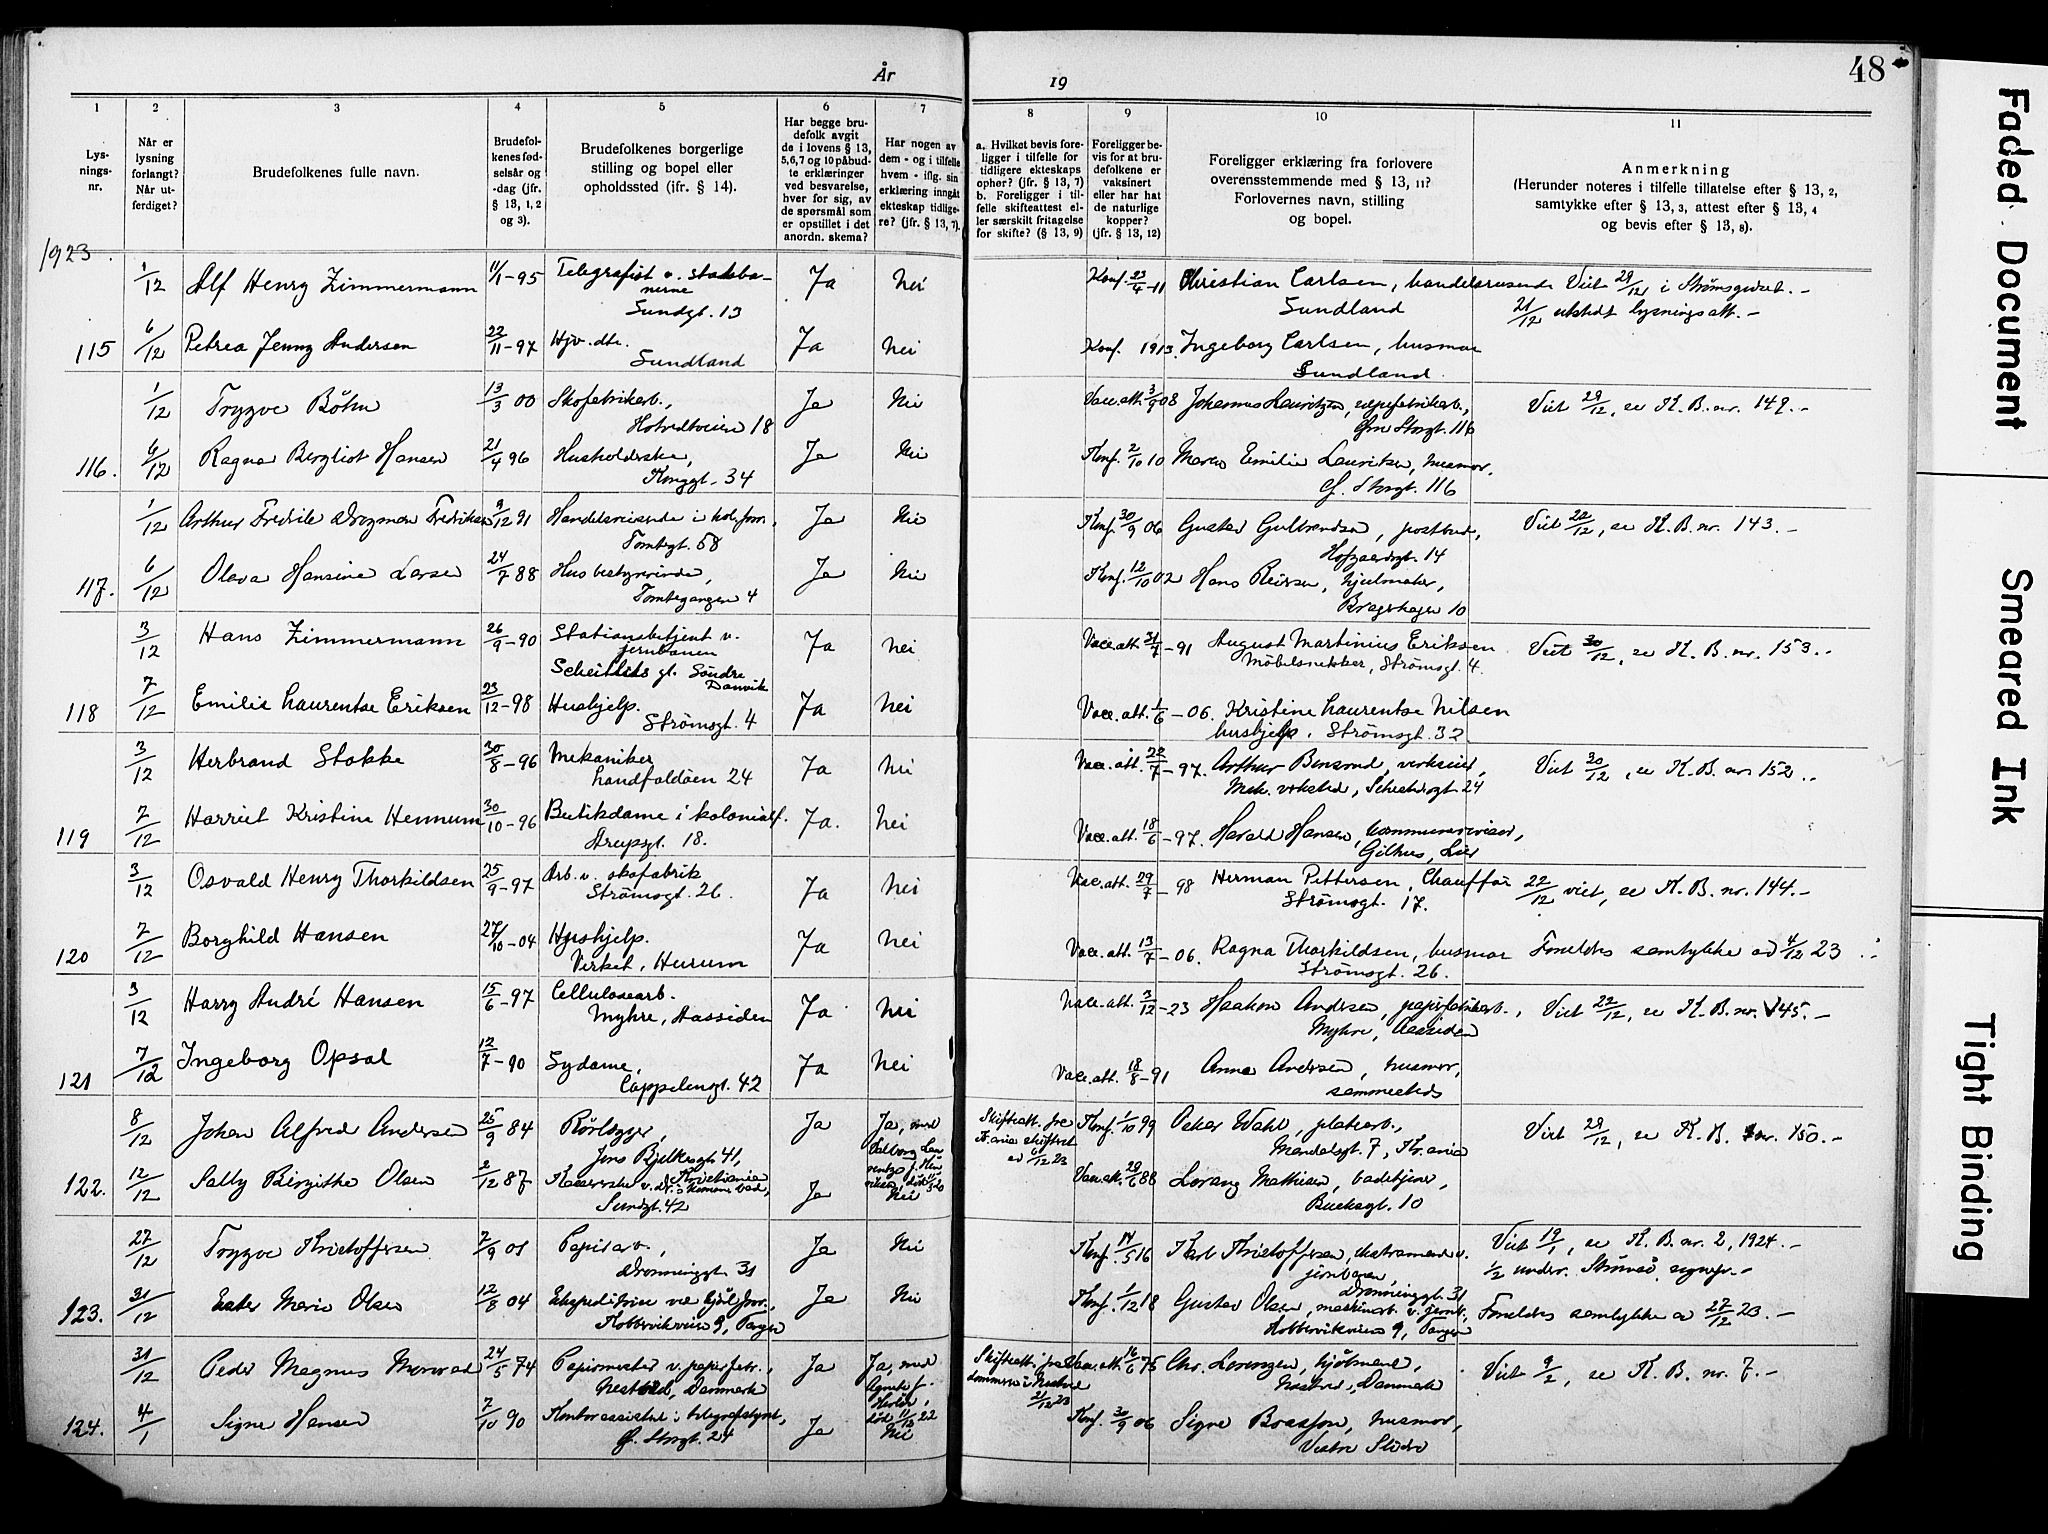 År
19
48
1
2
3
4
5
6
7
8
9
10
11
Lys-
nings-
nr.
Når er
lysning
forlangt?
Når ut-
ferdiget?
Brudefolkenes fulle navn.
Brudefol-
kenes fød-
selsår og
-dag (jfr.
§ 13, 1, 2
og 3).
Brudefolkenes borgerlige
stilling og bopel eller
opholdssted (jfr. § 14).
Har begge bru-
defolk avgit
de i lovens § 13,
5, 6, 7 og 10 påbud-
te erklæringer
ved besvarelse,
hver for sig, av
de spørsmål som
er opstillet i det
anordn. skema?
Har nogen av
dem - og i tilfelle
hvem - iflg. sin
erklæring inngått
ekteskap tidlige-
re? (jfr. § 13, 7).
a. Hvilket bevis fore-
ligger i tilfelle for
tidligere ekteskaps
ophør? (jfr. § 13, 7)
b. Foreligger i til-
felle skifteattest el-
ler særskilt fritagelse
for skifte? (§ 13, 9)
Foreligger be-
vis for at bru-
defolkene er
vaksinert
eller har hat
de naturlige
kopper?
(jfr. § 13, 12)
Foreligger erklæring fra forlovere
overensstemmende med § 13, 11?
Forlovernes navn, stilling
og bopel.
Anmerkning
(Herunder noteres i tilfelle tillatelse efter § 13, 2,
samtykke efter § 13, 3, attest efter § 13, 4
og bevis efter § 13, 8).
1923.
1/12 Alf Henry Zimmermann 11/1-95 Telegrafist v. statsba- Ja Nei Konf. 23/4-11 Christian Carlsen, handelsreisende Viet 29/12 i Strømsgodset.-
nerne
Sundgt. 13 Sundland 21/12 utstedt lysningsatt.-
115 6/12 Petrea Jenny Andersen 22/11-97 Hjv. dtr. Ja Nei Konf. 1913. Ingeborg Carlsen, husmor
Sundland Sundland.
1/12 Trygve Bøhn 13/3 00 Skofabrikarb., Ja Nei Vacc.att. 3/9 08 Johannes Lauritzen, Viet 29/12, se K.B. nr. 149.-
Hotvedtveien 18 Øvre Storgt. 116
116. 6/12 Ragna Bergliot Hansen 21/4 96 Husholderske, Ja Nei Konf. 2/10 10 Maren Emilie Lauritzen, husmor,
Konggt. 34 Ø. Storgt. 116
1/12 Arthur Fredrik Dragman Fredriksen 9/12 91 Handelsreisende i kol. forr., Ja Nei Konf. 30/9 06 Gustav Gulbrandsen, postbud, Viet 22/12, se K.B. nr. 143.-
Tomtegt. 58 Hofgaardsgt. 14
117. 6/12 Olava Hansine Larsen 24/7 88 Husbestyrerinde, Ja Nei Konf. 12/10 02 Hans Reiersen, hjulmaker,
Tomtegangen 4 Bragerhagen 10
3/12 Hans Zimmermann 26/9-90 Stationsbetjent v. Ja Nei Vacc.att. 31/7-91 August Martinius Eriksen Viet 30/12, se K.B. nr. 153.-
jernbanen Møbelsnekker, Strömsgt. 4.
Scheitlies gt. Söndre
Danvik
118 7/12 Emilie Laurentse Eriksen 23/12-98 Hushjelp. Ja Nei Vacc.att. 1/6-06. Kristine Laurentse Nilsen
Strömsgt. 4 hushjelp, Strömsgt. 32
3/12 Herbrand Stokke 30/8-96 Mekaniker Ja Nei Vacc.att. 22/7-97. Arthur Bensrud, Viet 30/12, se K.B. nr. 152.-
Landfaldöen 24 Mek. verksted, 24
119 7/12 Harriet Kristine Hennum 30/10-96 Butikdame i kolonialf. Ja. Nei Vacc.att. 18/6-97. Harald Hansen, kommunerevisor,
Arupsgt. 18. Gilhus, Lier
3/12 Osvald Henry Thorkildsen 25/9-97 Arb. v. skofabrik Ja Nei Vac.att. 29/7-98 Herman Pettersen, Chauffør 22/12 viet, se K.B. nr. 144.-
Strömsgt. 26. Strömsgt. 17.
120 7/12 Borghild Hansen 27/10-04 Hushjelp. Ja Nei Vacc.att. 13/7-06. Ragna Thorkildsen, husmor Foreldres samtykke av 4/12 23.
Verket, Hurum Strömsgt. 26.
3/12 Harry André Hansen 15/6-97 Cellulosearb. Ja Nei Vacc.att. 3/12-23 Haakon Andersen, papirfabrikarb., Viet 22/12, se K.B. nr. 145.-
Myhre, Aassiden Myhre, Aassiden
121 7/12 Ingeborg Opsal 12/7-90 Sydame, Ja Nei Vacc.att. 18/8-91 Anna Andersen, husmor,
Cappelengt. 42 sammesteds
8/12 Johan Alfred Andersen 25/9 84 Rörlegger, Ja Ja, med Skifteatt. fra Konf. 1/10 99 Oskar Wahl, platearb., Viet 29/12, se K.B. nr. 150.-
Jens Bjelkesgt. 41, Kr.ania skifteret Mandalsgt. 7, Kr.ania
Kristiania av 6/12 23
122. 12/12 Sally Birgithe Olsen 2/12 87 Kasserske v. Ja Nei Vacc.att. 29/6 88 Lorang Mathisen, badetjener,
Sundgt. 42 Bueksgt. 10
27/12 Trygve Kristoffersen 7/9 01 Papirarb., Ja Nei Konf. 14/5 16 Karl Kristoffersen, ekstramand v. Viet 19/1, se K.B. nr. 2, 1924.-
Dronninggt. 31 jernbanen, 1/2 underr.
Dronninggt. 31
123. 31/12 Ester Marie Olsen 12/8 04 Ekspeditrise Ja Nei Konf. 1/12 18 Gustav Olsen, maskinarb. v. jernb. Foreldres samtykke av 27/12 23.-
Kobbervikveien 9, Tangen Kobbervikveien 9, Tangen
31/12 Peder Magnus 24/5 74 Papirmester v. papirfabr., Ja Ja, med Skifteatt. fra Vacc.att. 16/6 75 Chr. Lorenzen, Viet 9/2, se K.B. nr. 7.-
Nestved, Danmark Agnete f. 21/12 23 Næstved, Danmark
død 11/12 22
124. 4/1 Signe Hansen 7/10 90 Kontorassistent i telegrafstyret, Ja Nei Konf. 30/9 06 Signe Braasfon, husmor,
Ø. Storgt. 24 Vestre Slidre
Faded Document
Smeared Ink
Tight Binding